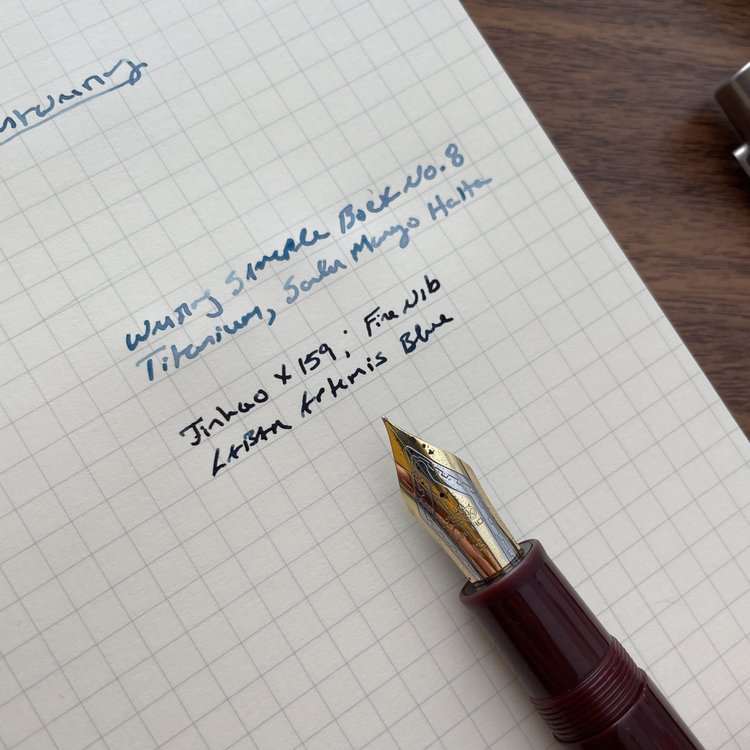 Writing Sample Bock No. 8
Titanium, Sailor Manyo Haha
Jinhao X159; Fine Nib
LABAN Artemis Blue